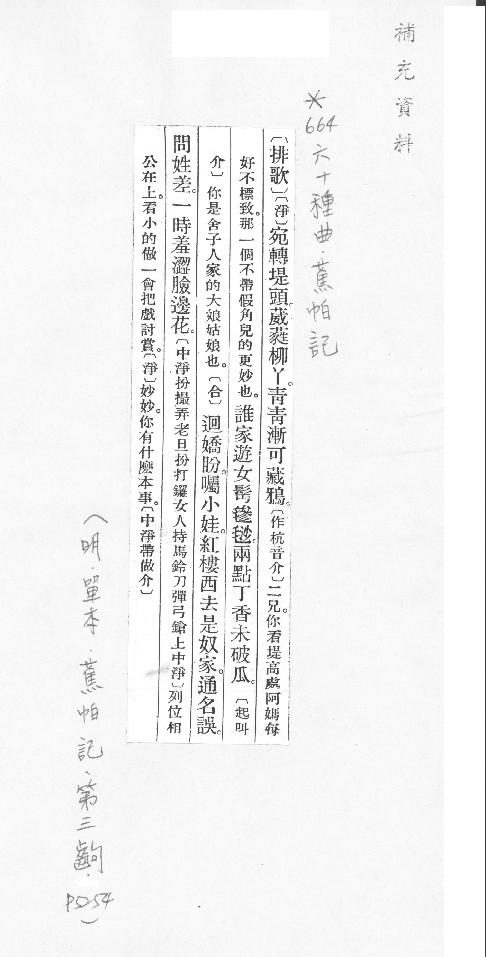 補充資料
*664六十種曲·蕉帕記
〔排歌〕〔淨〕宛轉堤頭。葳蕤柳丫。青青漸可藏鴉。〔作杭音介〕二兄。你看堤高處阿媽每
好不標致。那一個不帶假角兒的更妙也。誰家遊女髩鬖䯯。兩點丁香未破瓜。〔起叫
介〕你是舍子人家的大娘姑娘也。〔合〕迴嬌盼。囑小娃。紅樓西去是奴家。通名誤。
問姓差。一時羞澀臉邊花。〔中淨扮撮弄老旦扮打鑼女人持馬鈴刀彈弓鎗上中淨〕列位相
公在上。看小的做一會把戲討賞。〔淨〕妙妙。你有什麼本事。〔中淨帶做介〕
(明·單本·蕉帕記、第三齣·P52-54)